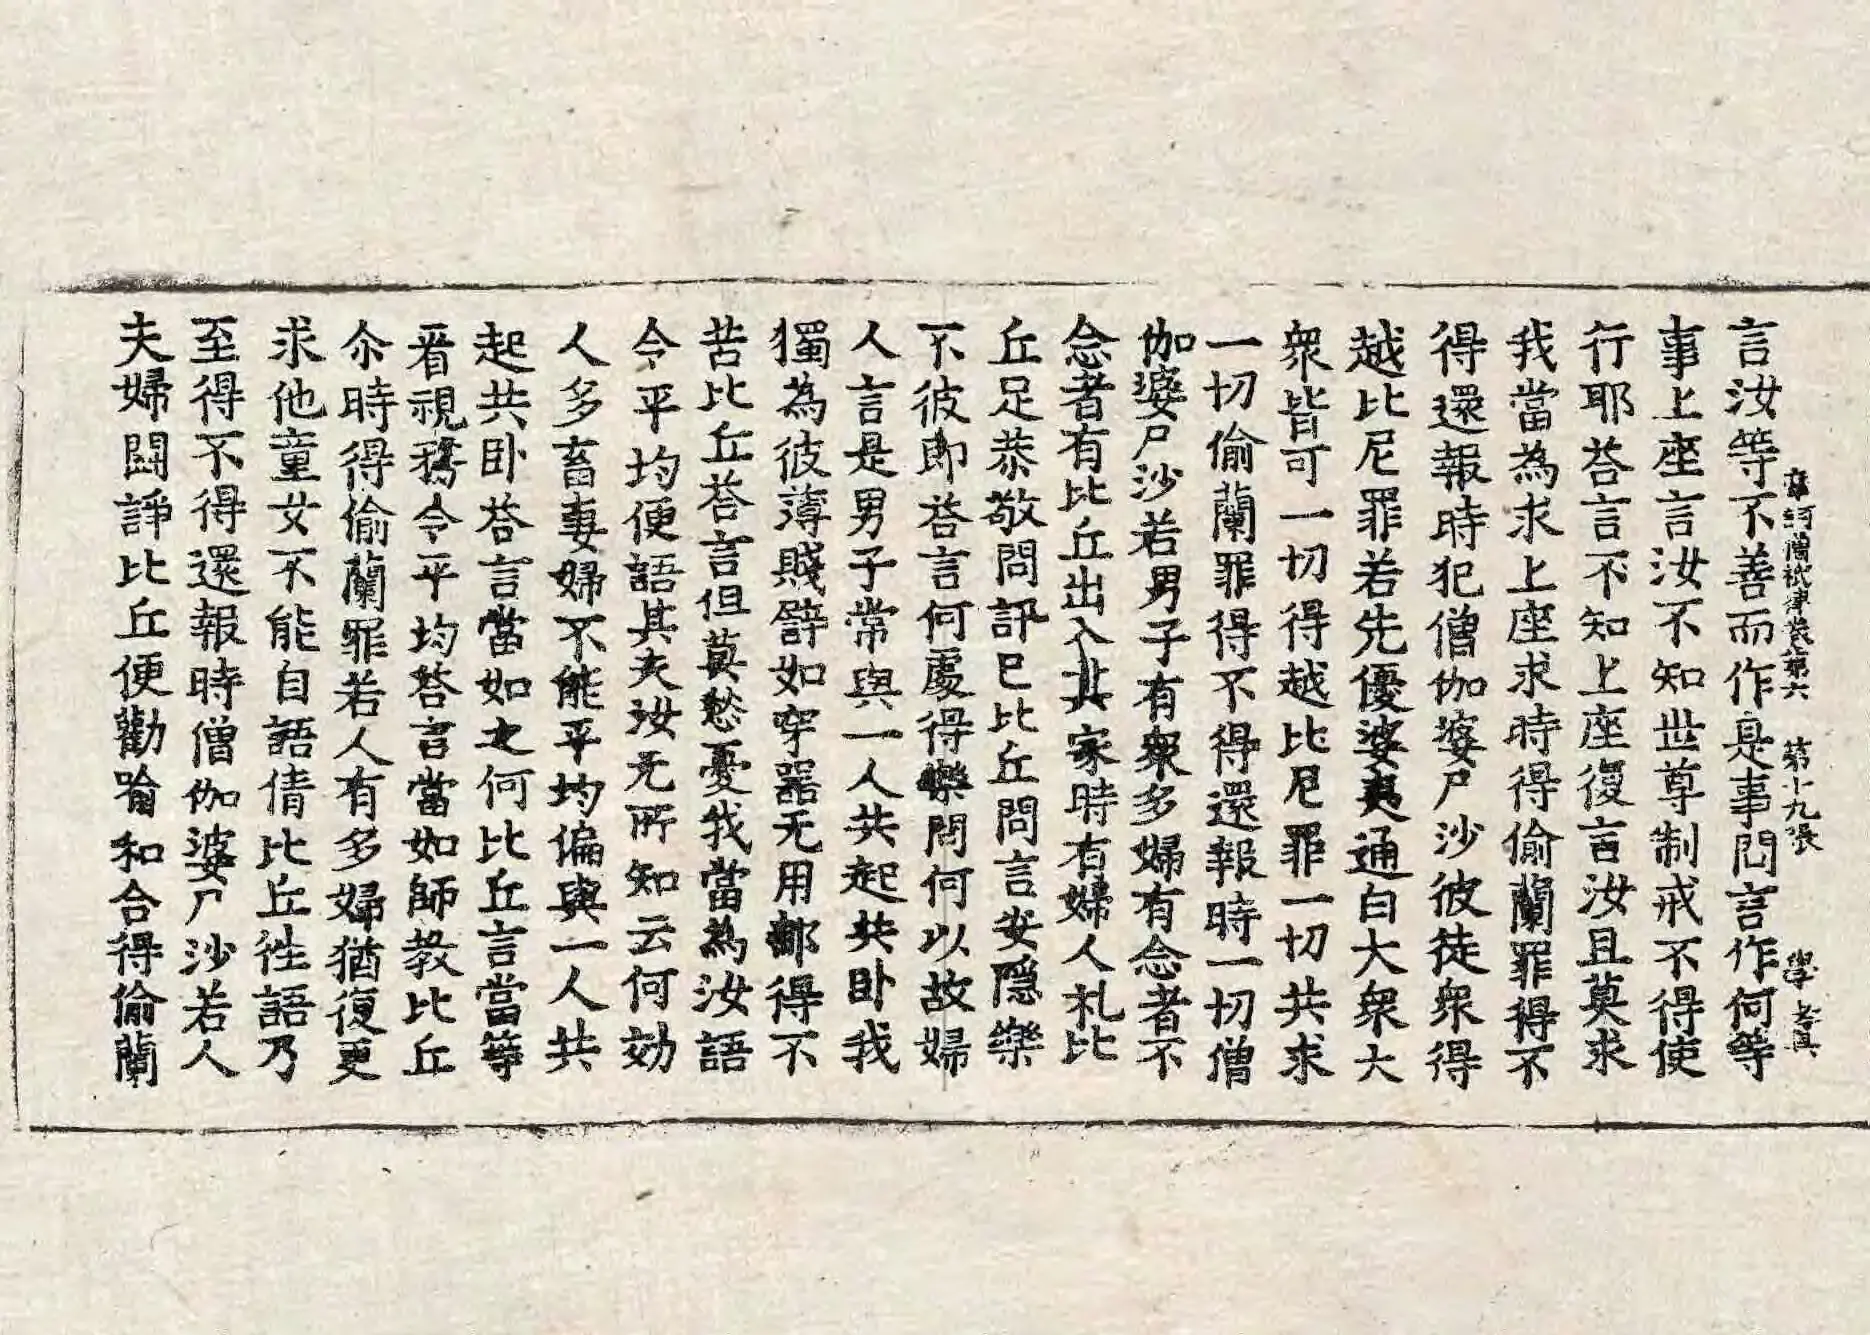 言汝等不善而作是事問言作何等
摩訶僧祇律卷第六 第十九張 學
事上座言汝不知世尊制戒不得使
行耶荅言不知上座復言汝且莫求
我當為求上座求時得偷蘭罪得不
得還報時犯僧伽婆尸沙彼徒衆得
越比尼罪若先優婆夷通白大衆大
衆皆可一切得越比尼罪一切共求
一切偷蘭罪得不得還報時一切僧
伽婆尸沙若男子有衆多婦有念者不
念者有比丘出入其家時有婦人礼比
丘足恭敬問訊已比丘問言安隱樂
不彼即荅言何處得樂問何以故婦
人言是男子常與一人共起共卧我
獨為彼薄賤譬如穿器无用鄣得不
苦比丘荅言但莫愁憂我當為汝語
令平均便語其夫汝无所知云何効
人多畜妻婦不能平均偏與一人共
起共卧荅言當如之何比丘言當等
看視務令平均荅言當如師教比丘
尒時得偷蘭罪若人有多婦猶復更
求他童女不能自語倩比丘往語乃
至得不得還報時僧伽婆尸沙若人
夫婦鬪諍比丘便勸喻和合得偷蘭